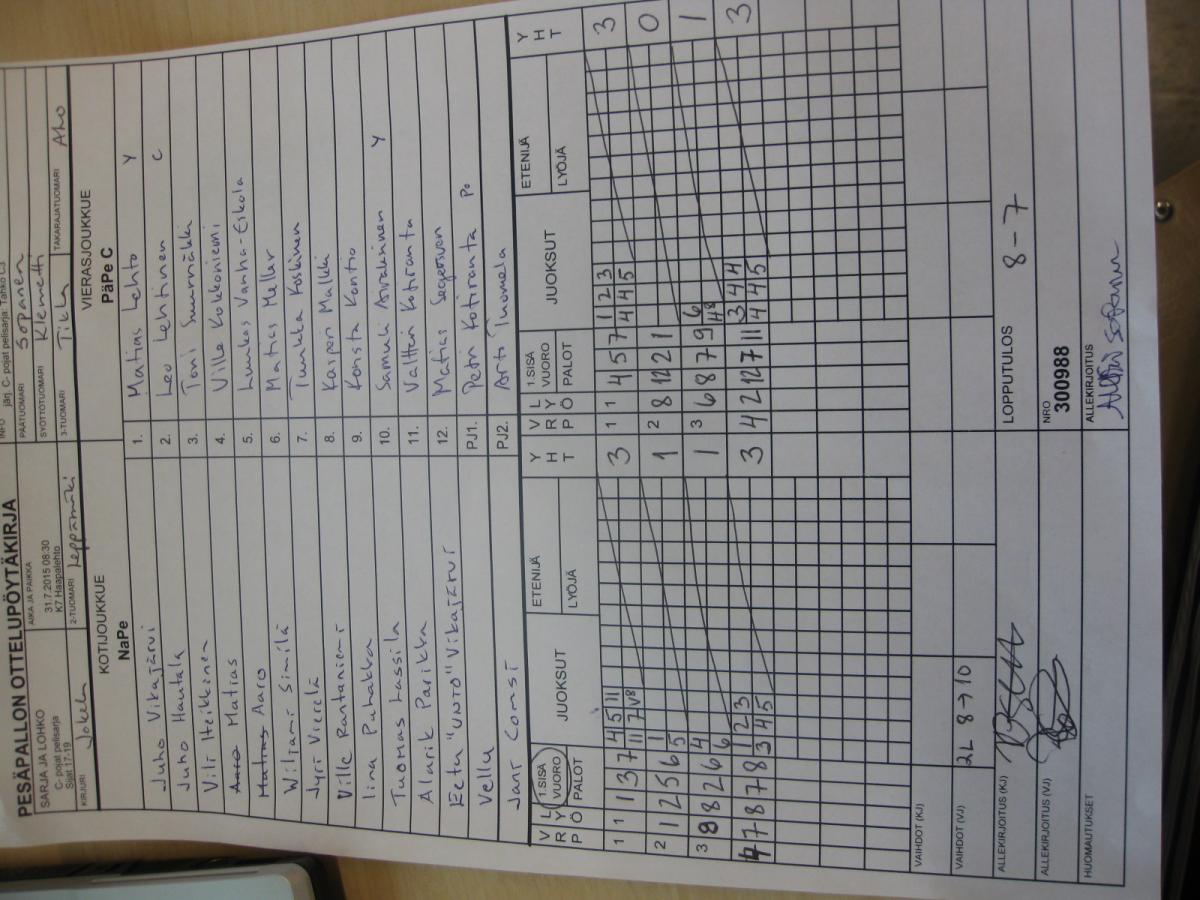 PESÄPALLON OTTELUPÖYTÄKIRJA
SARJA JA LOHKO
C- pojat pelisarja
Sijat 17-19
AIKA JA PAIKKA
31.7.2015 08:30
K7 Haapalehto
INFO
järj. C- pojat pelisarja: Tahko C3
PÄÄTUOMARI Sopanen
SYÖTTÖTUOMARI Klemetti
KIRJURI Jokela
2-TUOMARI Leppämäki
3-TUOMARI Tikka
TAKARAJATUOMARI Aho
KOTIJOUKKUE
NaPe
VIERASJOUKKUE
PäPe C
Juho Vikajärvi 1. Matias Lehto Y
Juho Hautala 2. Leo Lehtinen C
Vili Heikkinen 3. Toni Suurmäkki
Aaro Matias 4. Ville Kokkoniemi
Matias Aaro 5. Luukas Vanha-Eskola
Wiliami Similä 6. Matias Mellar
Jyri Vierelä 7. Tuukka Koskinen
Ville Rantaniemi 8. Kasperi Malkki
Iina Puhakka 9. Konsta Kontio
Tuomas Lassila 10. Samuli Avikainen Y
Alarik Parikka 11. Valtteri Kotiranta
Eetu "UNTO" Vikajärvi 12. Matias Segersven
Vellu PJ1. Petri Kotiranta Po
Jari Comsi PJ2. Arti Tuomela
VRP LYÖ 1.SISÄ VUORO PALOT JUOKSUT ETENIJÄ LYÖJÄ YHT VRP LYÖ 1.SISÄ VUORO PALOT JUOKSUT ETENIJÄ LYÖJÄ YHT
1 1 1 3 7 4 5 11 3 1 1 4 5 7 1 2 3 3
11 7 V8 4 4 5
2 1 12 5 6 1 1 2 8 12 12 1 0
5
3 9 8 2 6 4 1 3 6 8 7 9 6 1
6 H8
4 7 8 7 8 1 2 3 3 3 4 2 12 7 11 3 4 4 3
3 4 5 4 4 5
VAIHDOT (KJ)
VAIHDOT (VJ) 2L 8→10
ALLEKIRJOITUS (KJ)
LOPPUTULOS 8-7
ALLEKIRJOITUS (VJ)
NRO
300988
HUOMAUTUKSET
ALLEKIRJOITUS